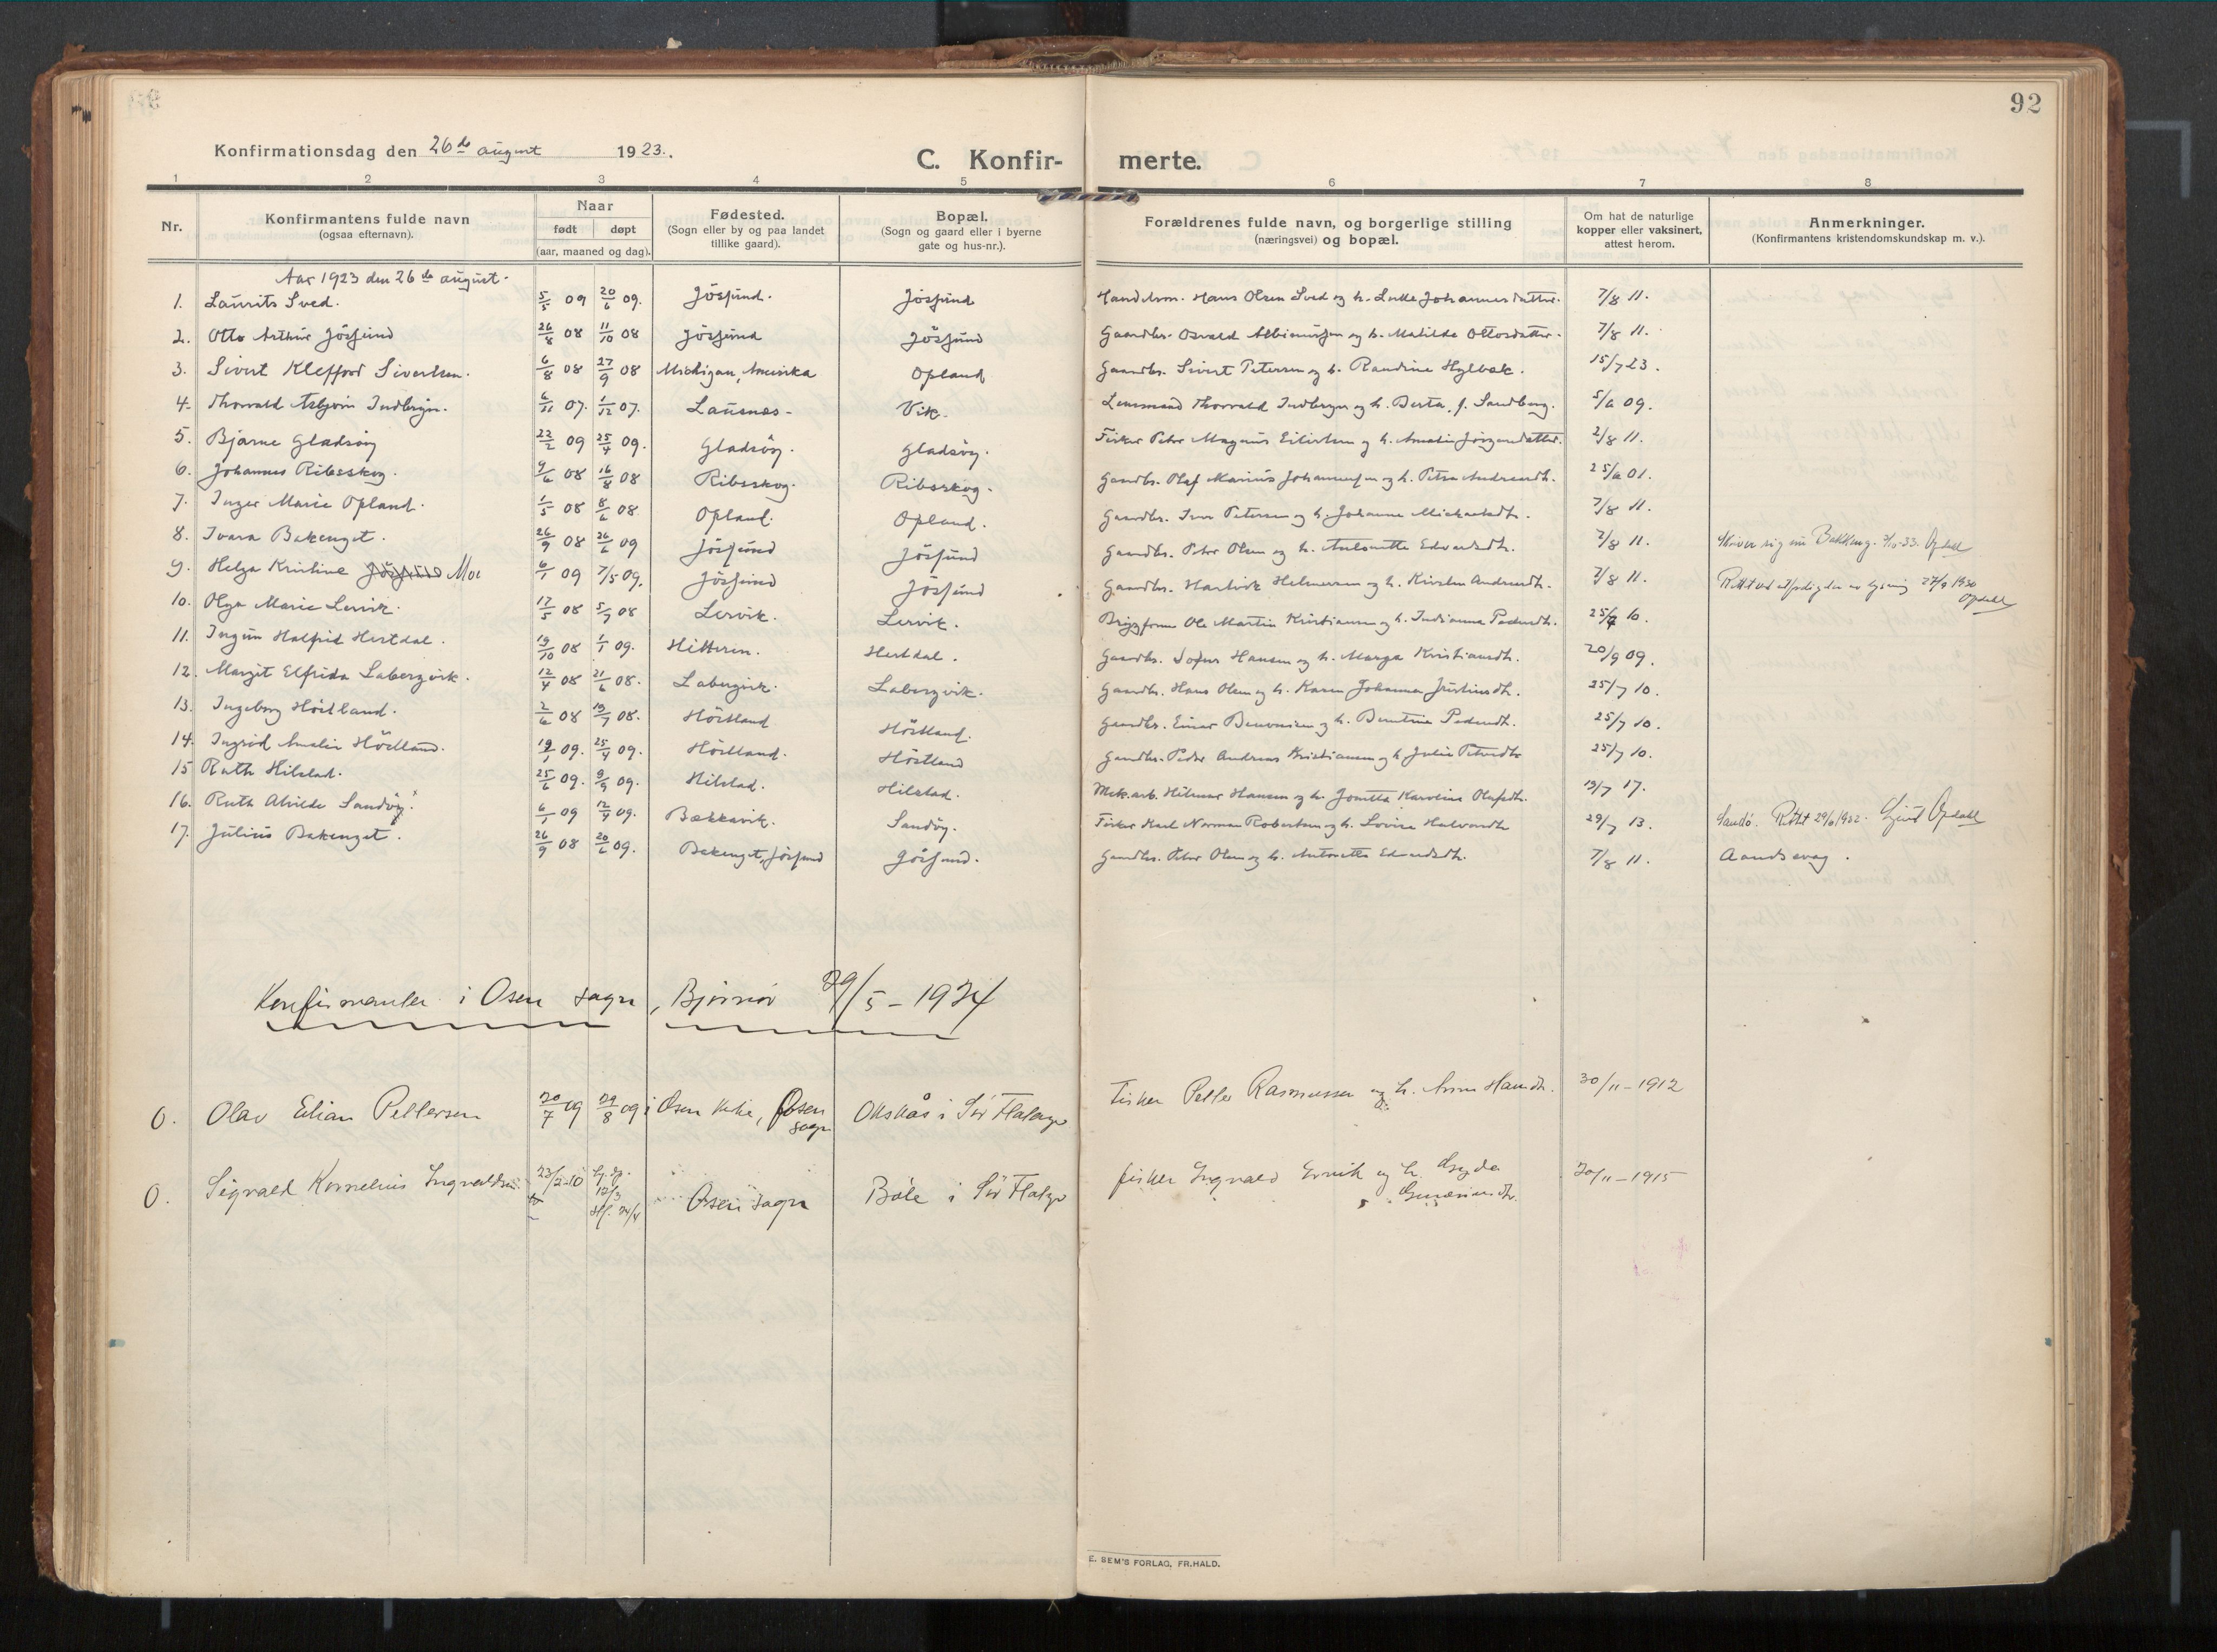 92
Konfirmationsdag den 26de august 1923.
C. Konfir- merte.
1 2 3 4 5 6 7 8
Nr.
Konfirmantens fulde navn
(ogsaa efternavn).
Naar
født døpt
(aar, maaned og dag).
Fødested.
(Sogn eller by og paa landet
tillike gaard).
Bopæl.
(Sogn og gaard eller i byerne
gate og hus-nr.).
Forældrenes fulde navn, og borgerlige stilling
(næringsvei) og bopæl.
Om hat de naturlige
kopper eller vaksinert,
attest herom.
Anmerkninger.
(Konfirmantens kristendomskundskap m. v.).
Aar 1923 den 26de august.
1. Laurits Sved. 5/5 09 20/6 09. Jösfund. Jösfund Hans Olsen Sved og h. Johannesdatter. 7/8 11.
2. Otto Arthur Jösfund 26/8 08 11/10 08 Jösfund Jösfund Gaardbr. Osvald Albinussen og h. Matilde Ottosdatter. 7/8 11.
3. Sivert Klefford Sivertsen. 6/8 08 27/9 08 Michigan, Amerika Opland Gaardbr. Sivert Petersen og h. Randine Hylbak. 15/7 23.
4. Thorvald Asbjørn Indbryn. 6/11 07. 1/12 07. Lausnes Vik. Lensmand Thorvald Indbryn og h. Berta, f. Sandberg. 5/6 09.
5. Bjarne Gladsöy 22/2 09 25/4 09. Gladsöy. Gladsöy. Fisker Peter Magnus Eilertsen og h. Amalie Jörgensdatter. 2/8 11.
6. Johannes Ribsskog. 9/6 08 16/8 08 Ribsskog. Ribsskog. Gaardbr. Olaf Marius Johannessen og h. Petra Andreasdtr. 25/6 01.
7. Inger Marie Opland. 1/5 08 8/6 08 Opland. Opland. Gaardbr. Iver Petersen og h. Johanna Mickaelsdtr. 7/8 11.
8. Ivara Bakenget. 26/9 08 26/6 09 Jösfund Jösfund Gaardbr. Peter Olsen og h. Antonette Edvardsdtr. 7/8 11. Skriver sig nu Bakkeng. 33. Opdahl
9. Helga Kristine Jösfund Moe 6/1 09 7/5 09. Jösfund Jösfund Gaardbr. Hartvik Helmersen og h. Kirsten Andreasdtr. 7/8 11. Rettet ved 27/9 1930
Opdahl
10. Olga Marie Lervik. 17/5 08 5/7 08 Lervik. Lervik. Ole Martin Kristiansen og h. Indianna Pedersdtr. 25/7 10.
11. Ingun Halfrid Hestdal. 19/10 08 1/1 09. Hitteren. Hestdal. Gaardbr. Sofus Hansen og h. Marga Kristiansdtr. 20/9 09.
12. Margit Elfrida Labergvik. 12/4 08 21/6 08. Labergvik. Labergvik. Gaardbr. Hans Olsen og h. Karen Johanna Justinsdtr. 25/7 10.
13. Ingeborg Höstland. 2/6 08 19/7 08. Höstland Höstland. Gaardbr. Einar Benonisen og h. Berntine Pedersdtr. 25/7 10.
14. Ingrid Amalie Höstland. 19/1 09. 25/4 09. Höstland. Höstland Gaardbr. Peder Andreas Kristiansen og h. Julie Petersdtr 25/7 10.
15 Ruth Hilstad. 25/6 09. 9/9 09. Hilstad. Hilstad. Mek.arb. Hilmar Hansen og h. Jonetta Karoline Olufsdtr. 19/7 17.
16. Ruth Alvilde Sandöy. 6/1 09 12/4 09. Bækkavik. Sandöy. Fisker Karl Norman Robertsen og h. Lovise Halvordtr 29/7 13. Sandö. Rettet 29/6 1932. Opdahl
17. Julius Bakenget. 26/9 08 20/6 09. Bakenget, Jösfund Jösfund. Gaardbr. Peter Olsen og h. Antonette Edvardsdtr. 7/8 11. Aandssvag.
Konfirmanter i Osen sogn, Bjørnør 29/5 - 1924
0. Olav Edian Pettersen 20/7 09 24/8 09 i Osen kirke, Osen
sogn Okskås i Sør Flatøy Fisker Petter Rasmussen og h. Anna Hansdtr. 30/11 - 1912
0. Sigvald Kornelius Ingvaldsen 23/2-10 hj. dp.
12/3
stf. 24/4 Osen sogn Bøle i Sør Flatøy fisker Ingvald Ervik og h. Gyda 20/11 - 1915
E. SEM'S FORLAG, FR.HALD.